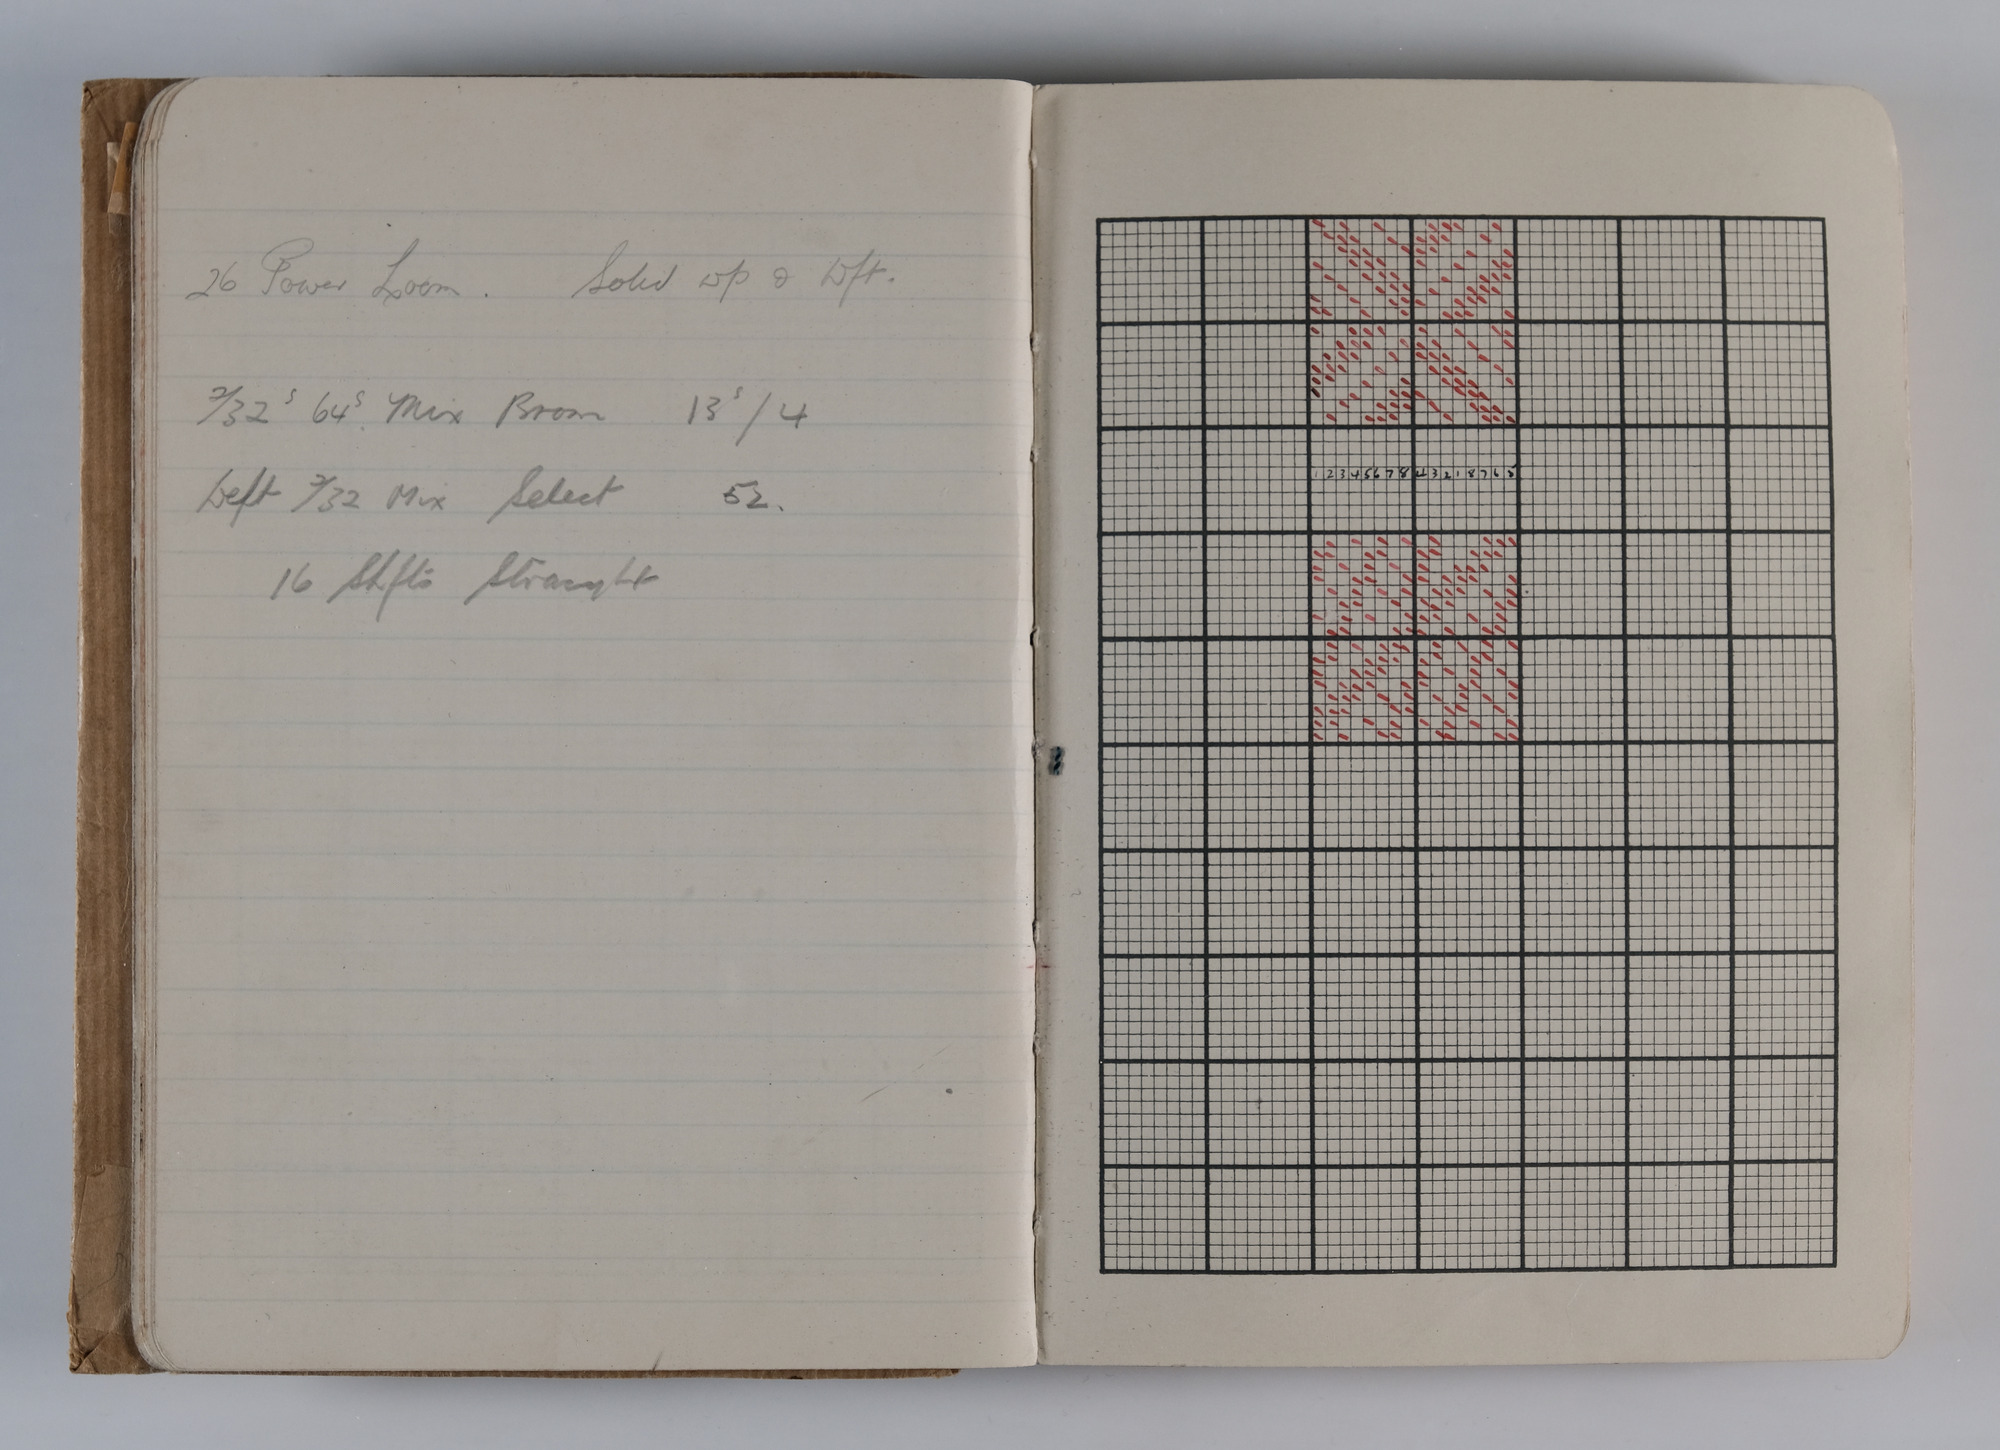 26 Power Loom. Solid wp & wft.
2/32s 64s Mix Brown 13s/4
Weft 2/32 Mix Select 52.
16 Shfts Straight
1 2 3 4 5 6 7 8 4 3 2 1 8 7 6 5